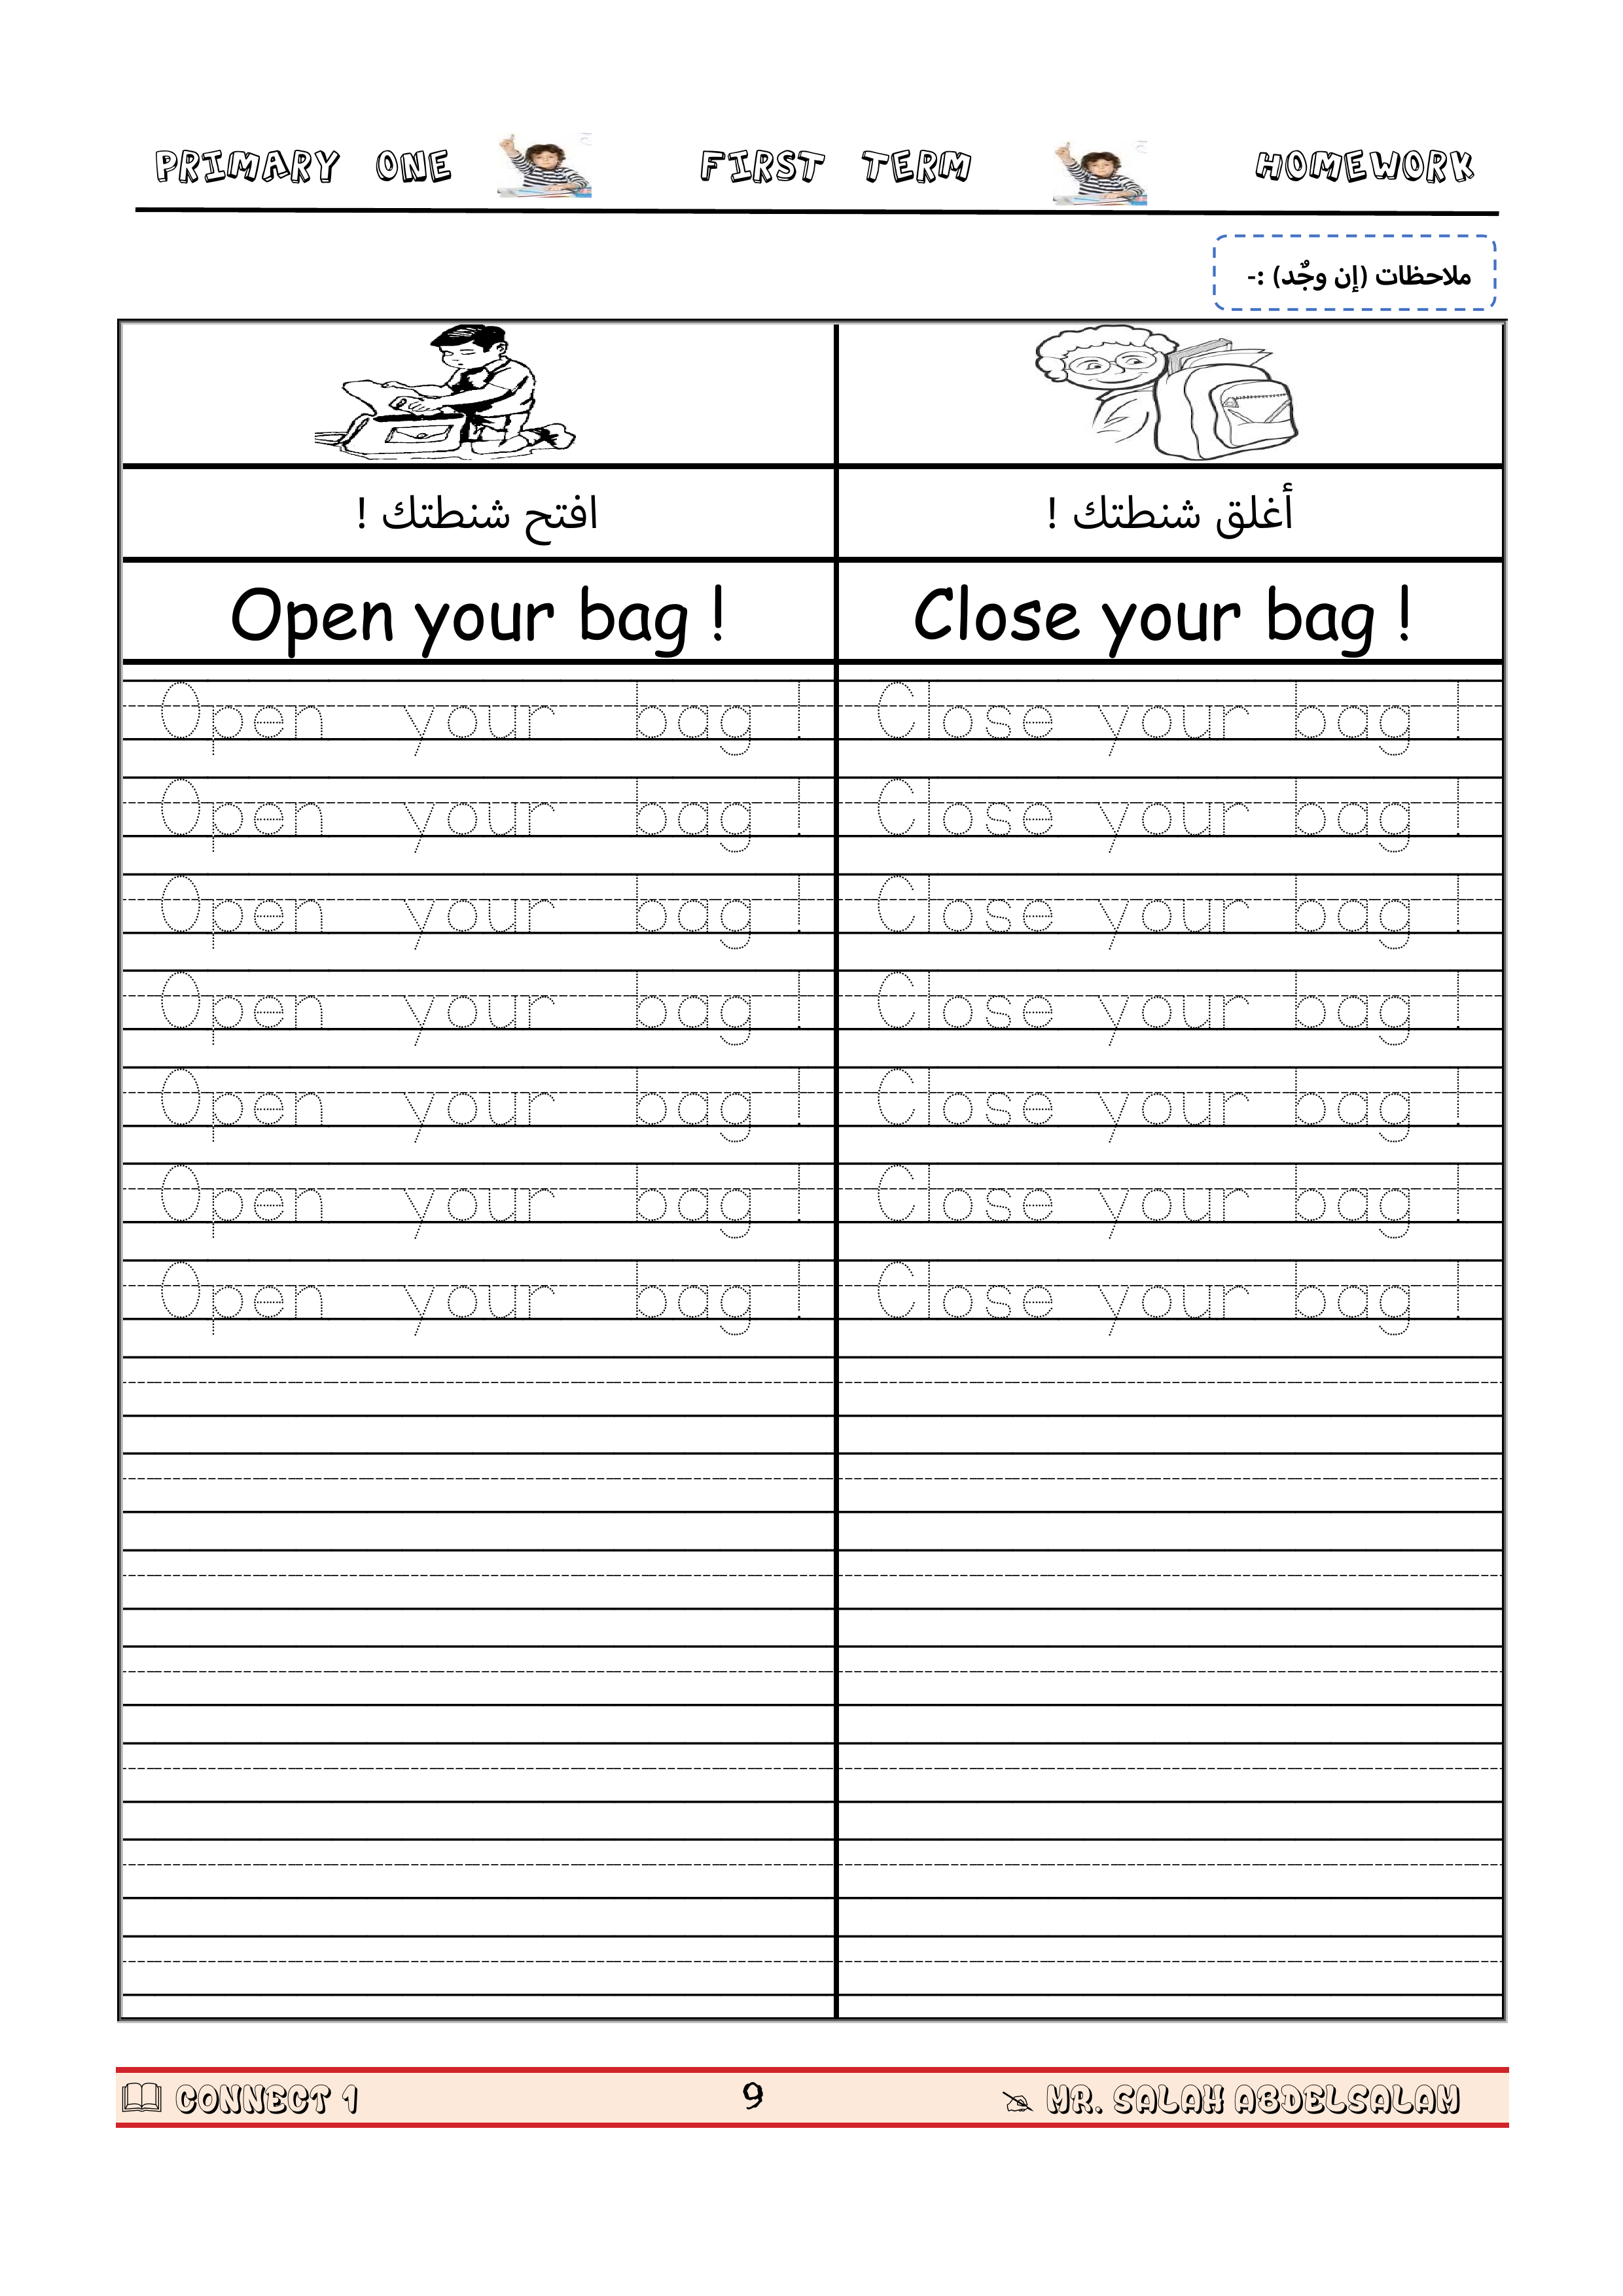 PRIMARY ONE FIRST TERM HOMEWORK
ملاحظات (إن وجُد) :-
افتح شنطتك ! أغلق شنطتك !
Open your bag ! Close your bag !
Open your bag ! Close your bag !
Open your bag ! Close your bag !
Open your bag ! Close your bag !
Open your bag ! Close your bag !
Open your bag ! Close your bag !
Open your bag ! Close your bag !
Open your bag ! Close your bag !
CONNECT 1 9 MR. SALAH ABDELSALAM